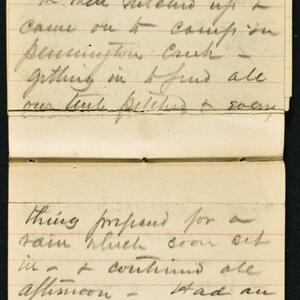 we then hitched up &
came on to camp on
Pennington Creek -
getting in to find all
our tents pitched & every
thing prepared for a
rain which soon set
in - & continued all
afternoon - Had an